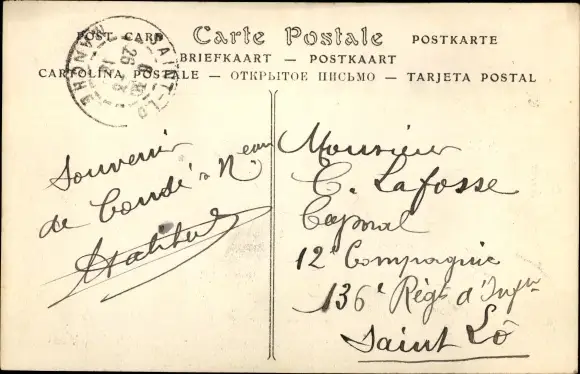 POST CARD Carte Postale POSTKARTE
BRIEFKAART — POSTKAART
CARTOLINA POSTALE — ОТКРЫТОЕ ПИСЬМО — TARJETA POSTAL
SAINT-LO
MANCHE
Souvenir
de Condé s Neau
Monsieur
C. Lafosse
Caporal
12e Compagnie
136e Régt d'Infie
Saint Lô